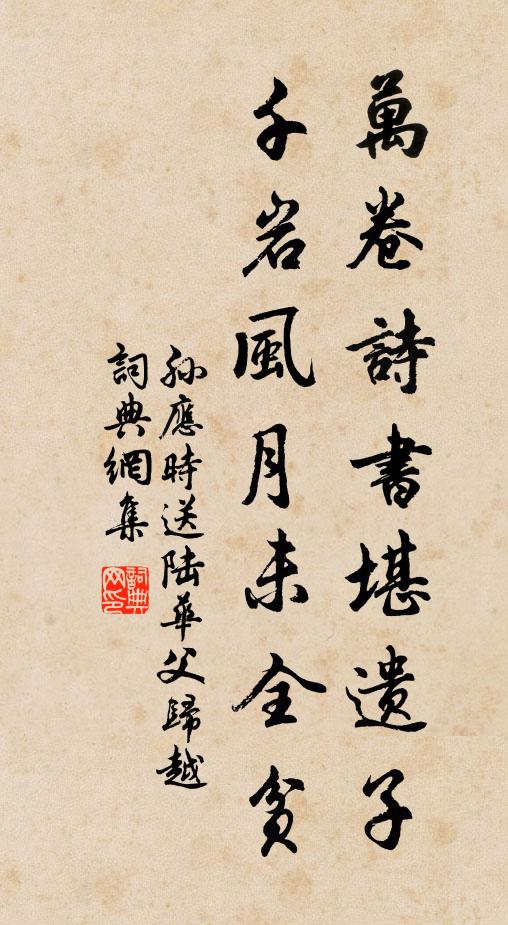 萬卷詩書堪遺子
千岩風月未全貧
孙應時送陆華父歸越
詞典網集
詞典網印